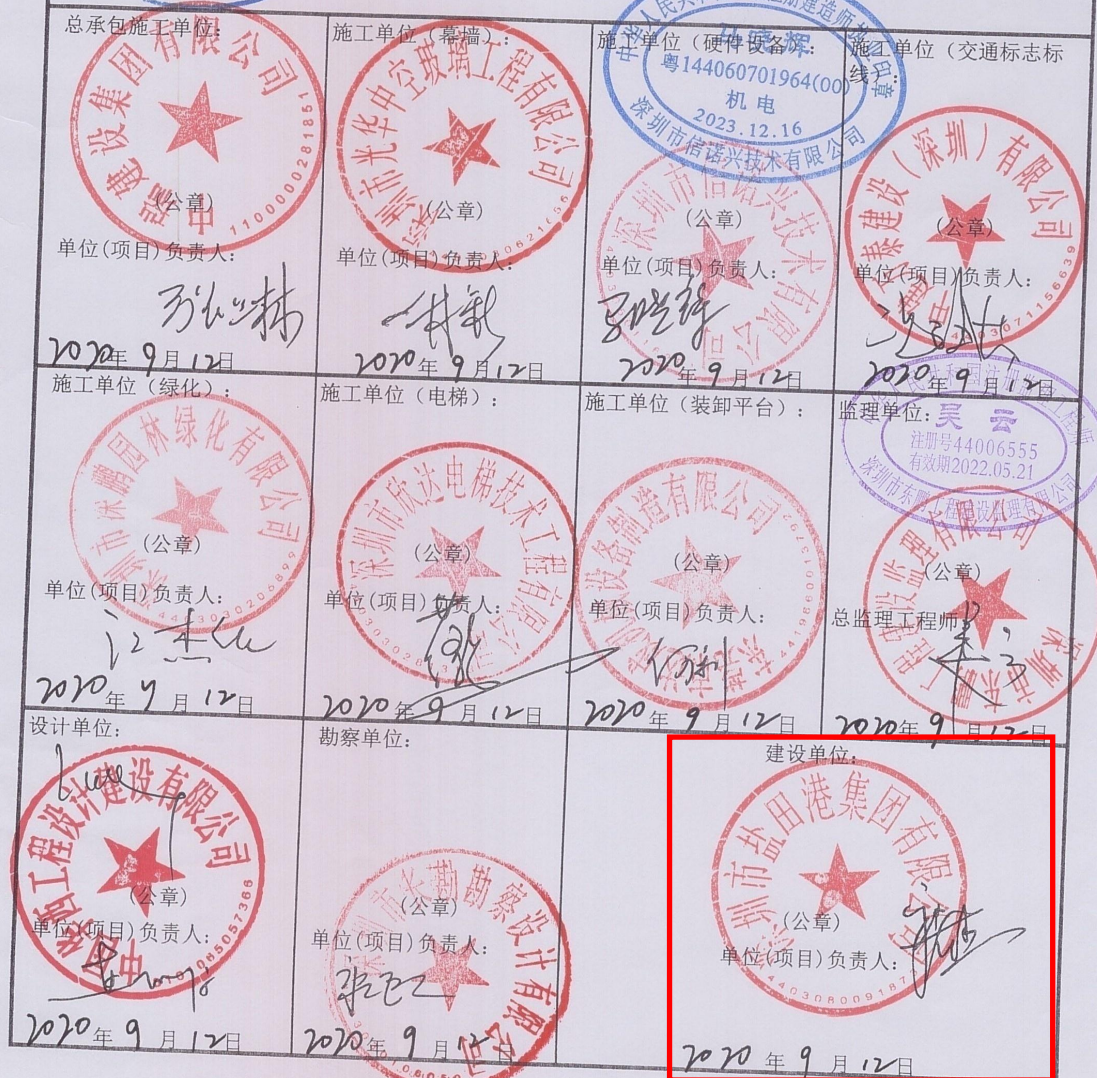 总承包施工单位：
中瑞建设集团有限公司
1100000281851
(公章)
单位(项目)负责人：
2020年 9月 12日
施工单位（幕墙）：
深圳市光华中空玻璃工程有限公司
(公章)
单位(项目)负责人：
2020年 9月 12日
施工单位（硬件设备）：
粤144060701964(00)
机电
2023.12.16
深圳市信诺兴技术有限公司
深圳市信诺兴技术有限公司
(公章)
单位(项目)负责人：
2020年 9月 12日
施工单位（交通标志标
线）：
建设（深圳）有限公司
(公章)
4403071156639
单位(项目)负责人：
2020年 9月 12日
施工单位（绿化）
深圳市深鹏园林绿化有限公司
(公章)
单位(项目)负责人：
2020年 9月 12日
施工单位（电梯）：
深圳市欣达电梯技术工程有限公司
(公章)
单位(项目)负责人：
2020年 9月 12日
施工单位（装卸平台）：
设备制造有限公司
(公章)
单位(项目)负责人：
2020年 9月 12日
监理单位：
吴云
注册号44006555
有效期2022.05.21
深圳市东鹏工程建设监理有限公司
深圳市东鹏工程建设监理有限公司
(公章)
总监理工程师：
2020年 9月 12日
设计单位：
工程设计建设有限公司
(公章)
单位(项目)负责人：
2020年 9月 12日
勘察单位：
深圳市长勘勘察设计有限公司
(公章)
单位(项目)负责人：
2020年 9月 12日
建设单位：
深圳市盐田港集团有限公司
(公章)
单位(项目)负责人：
2020年 9月 12日